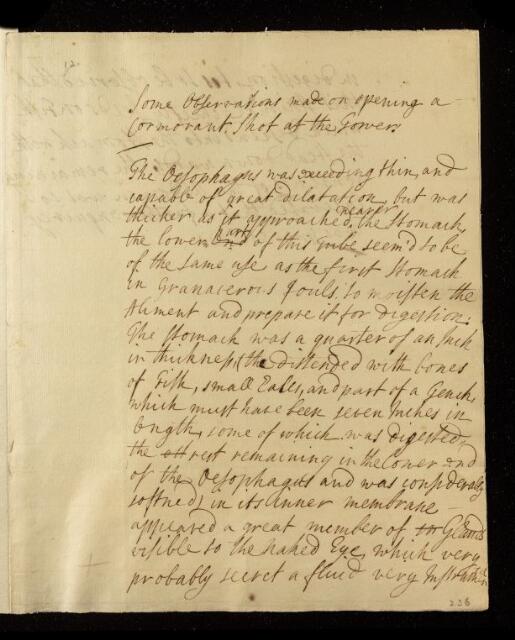 Some Observations made on opening a
Cormorant Shot at the Tower
The Oesophagus was exceeding thin, and
capable of great dilatation, but was
thicker as it approached nearer the Stomach,
the lower end part of this Tube seem'd to be
of the same use as the first Stomach
in Granaverous fouls; to moisten the
Aliment and prepare it for digestion:
The Stomach was a quarter of an Inch
in thickness, (tho distended with bones
of Fish, small Eales, and part of a Tench,
which must have been seven Inches in
length, some of which was digested,
the rest remaining in the lower end
of the Oesophagus and was considerably
softned) in its inner membrane
appeared a great member of Glands
visible to the Naked Eye, which very
probably secret a fluid very Instrumen
236